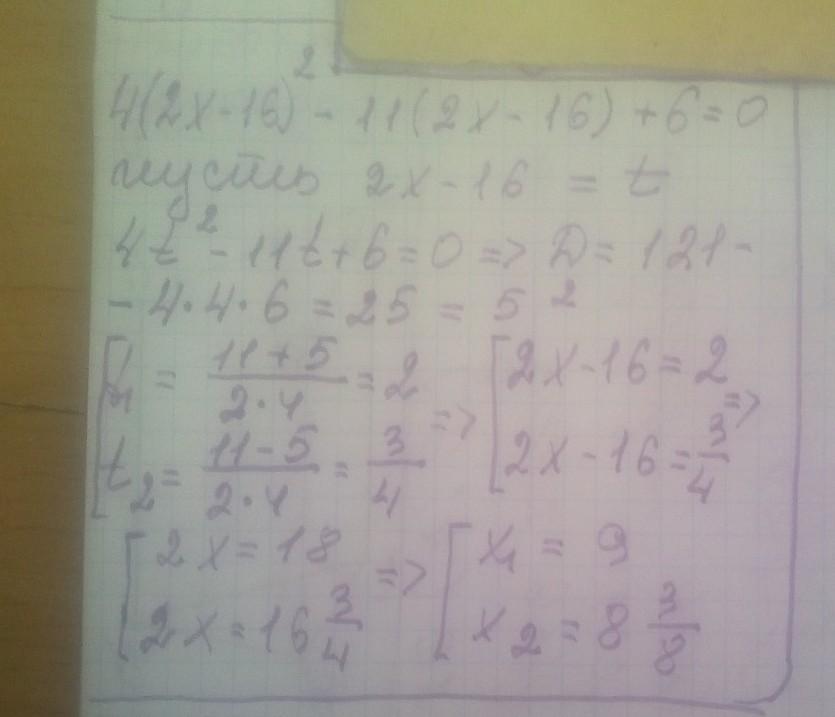 4(2x-16)² - 11(2x-16) + 6 = 0
пусть 2x-16 = t
4t² - 11t + 6 = 0 => D = 121 -
- 4·4·6 = 25 = 5²
[ t₁ = (11+5)/(2·4) = 2 => [ 2x-16 = 2 =>
t₂ = (11-5)/(2·4) = 3/4 2x-16 = 3/4
[ 2x = 18 => [ x₁ = 9
2x = 16 3/4 x₂ = 8 3/8